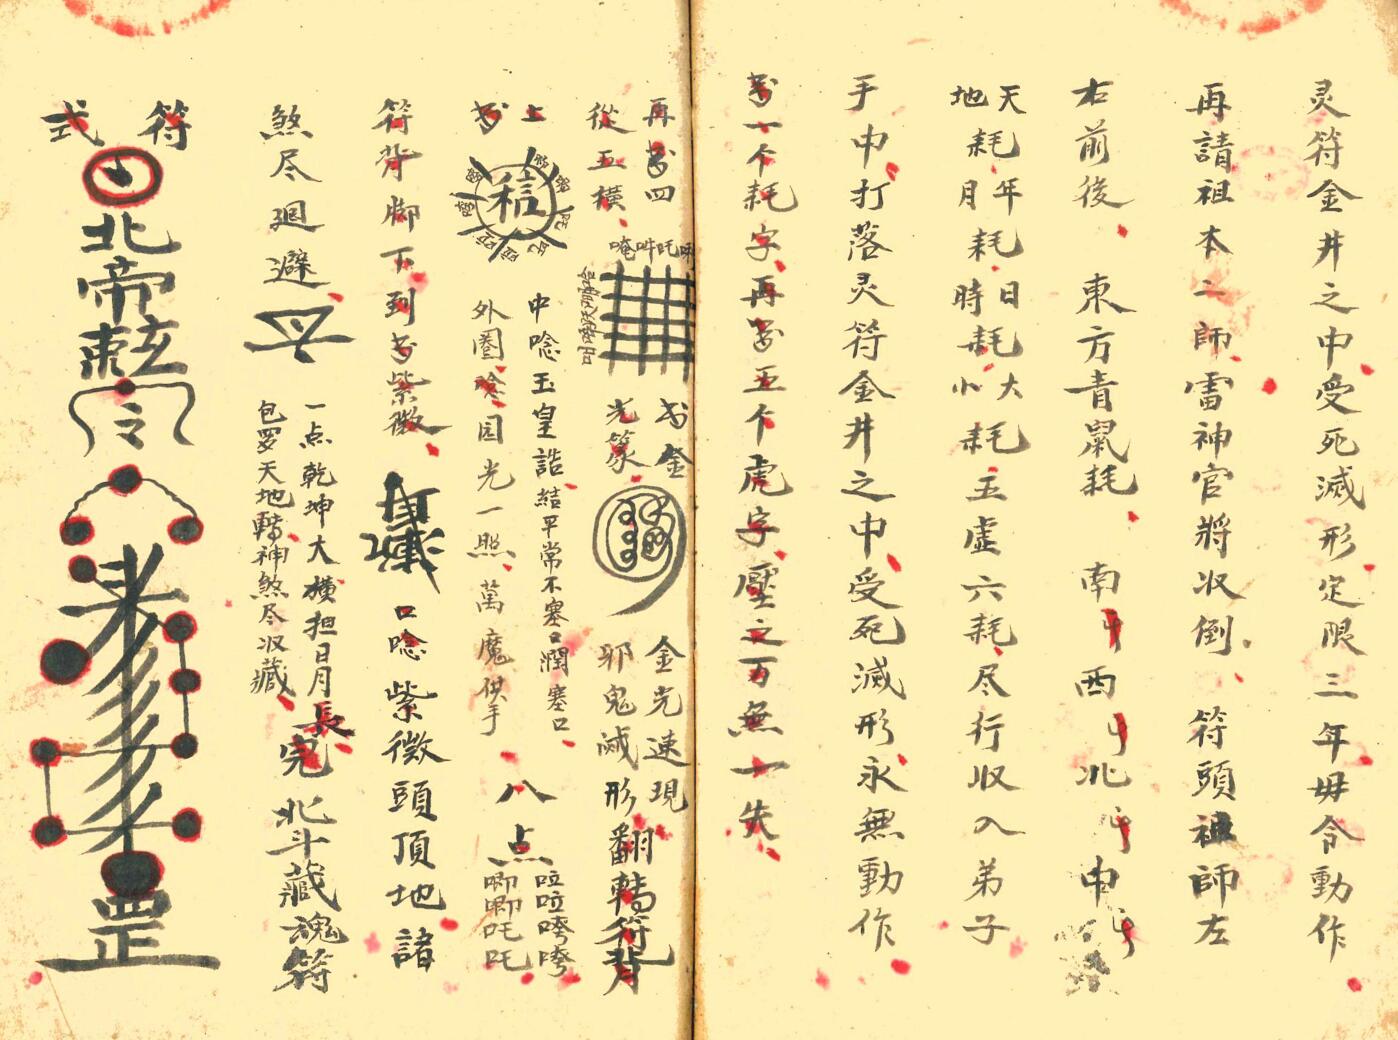 灵符金井之中受死滅形定限三年毋令動作
再請祖本二師雷神官將收倒符頭祖師左
右前後東方青鼠耗南
西
北
中
天
地耗年
月耗日
時耗大
小耗五虛六耗尽行收入弟子
手中打落灵符金井之中受死滅形永無動作
一个耗字再
五个虎字壓之万無一失
再
四
從五橫
唵吽吒
金
光篆
金光速現
邪鬼滅形翻轉符背
上
中唸玉皇誥結平常不塞口潤塞口
外圈唸园光一照萬魔供手
八点
符背脚下到
紫微
口唸紫微頭頂地諸
煞尽廻避
一点乾坤大橫担日月長
包罗天地轉神煞尽收藏
完
北斗藏魂符
符式
北帝敕
令
罡